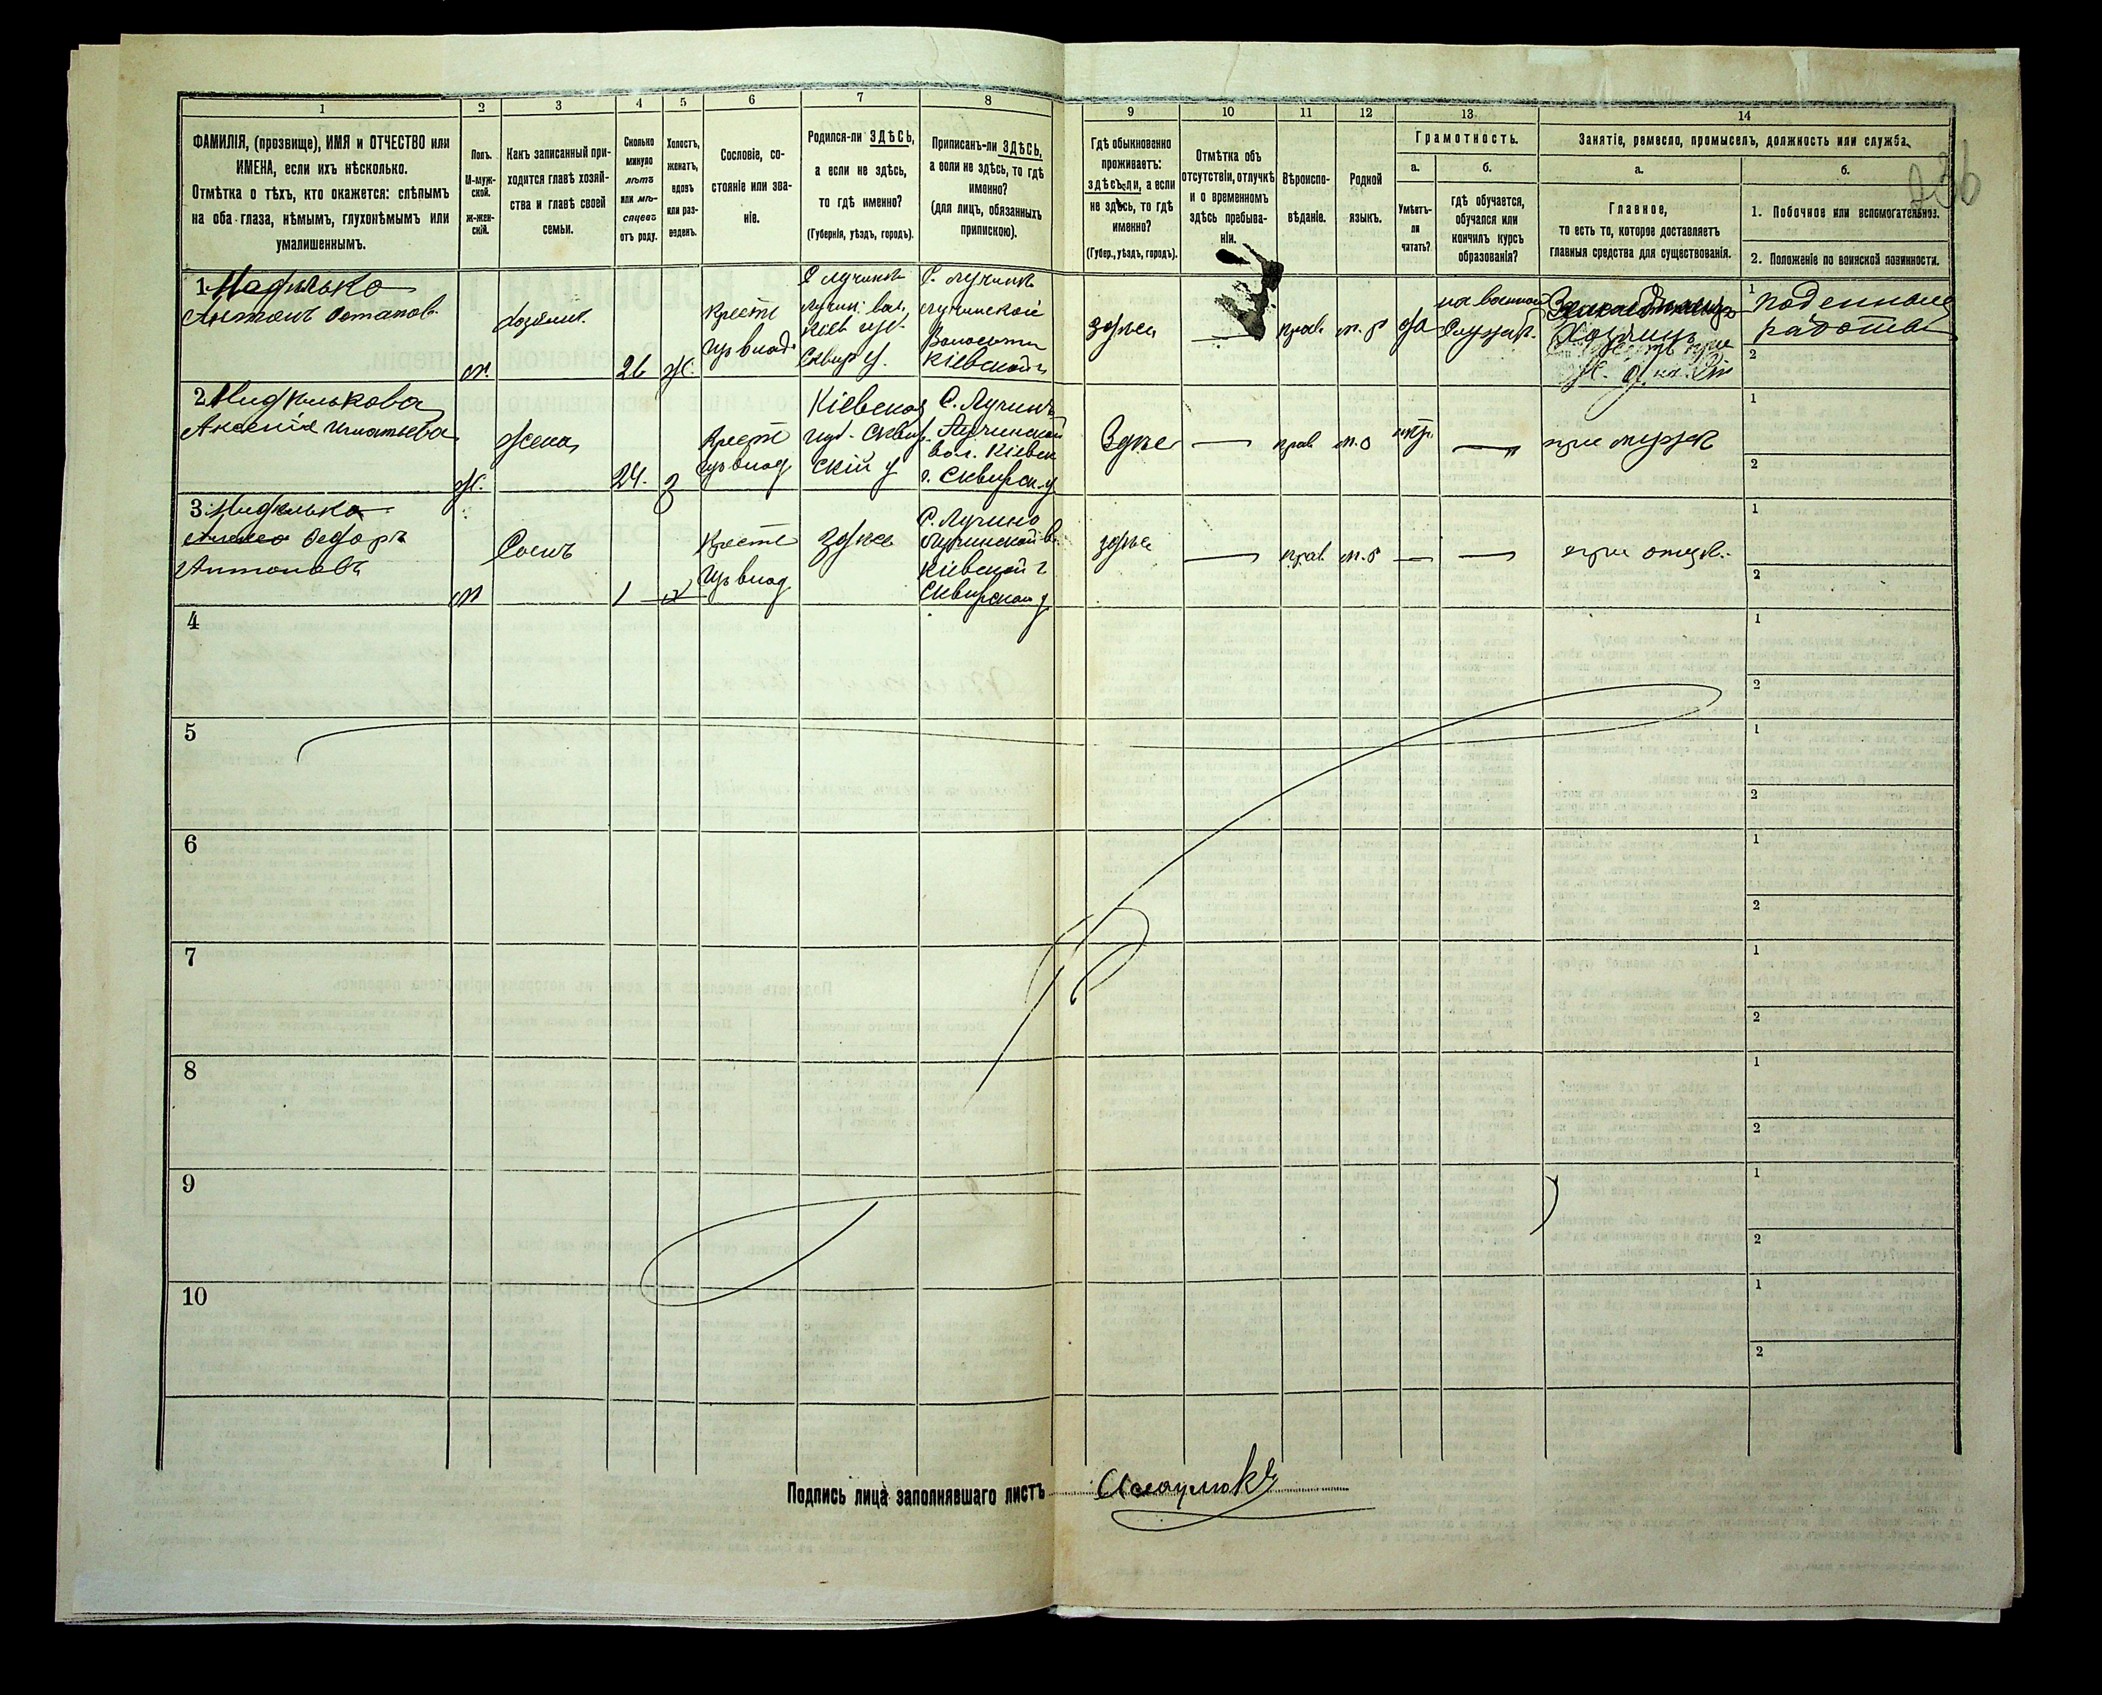 1
2
3
4
5
6
7
8
9
10
11
12
13
14
ФАМИЛІЯ, (прозвище), ИМЯ и ОТЧЕСТВО или
ИМЕНА, если ихъ нѣсколько.
Отмѣтка о тѣхъ, кто окажется: слѣпымъ
на оба глаза, нѣмымъ, глухонѣмымъ или
умалишеннымъ.
Полъ.
М-муж-
ской.
ж-жен-
скій.
Какъ записанный при-
ходится главѣ хозяй-
ства и главѣ своей
семьи.
Сколько
минуло
лѣтъ
или мѣ-
сяцевъ
отъ роду.
Холостъ,
женатъ,
вдовъ
или раз-
веденъ.
Сословіе, со-
стояніе или зва-
ніе.
Родился-ли ЗДѢСЬ,
а если не здѣсь,
то гдѣ именно?
(Губернія, уѣздъ, городъ).
Приписанъ-ли ЗДѢСЬ,
а если не здѣсь, то гдѣ
именно?
(для лицъ, обязанныхъ
припискою).
Гдѣ обыкновенно
проживаетъ:
здѣсь-ли, а если
не здѣсь, то гдѣ
именно?
(Губер., уѣздъ, городъ).
Отмѣтка объ
отсутствіи, отлучкѣ
и о временномъ
здѣсь пребыва-
ніи.
Вѣроиспо-
вѣданіе.
Родной
языкъ.
Грамотность.
а.
Умѣетъ-
ли
читать?
б.
гдѣ обучается,
обучался или
кончилъ курсъ
образованія?
Занятіе, ремесло, промыселъ, должность или служба.
а.
Главное,
то есть то, которое доставляетъ
главныя средства для существованія.
б.
1. Побочное или вспомогательное.
2. Положеніе по воинской повинности.
236
1
Антонъ Потапов.
м.
хозяинъ
26
ж.
Крест.
изъ влад.
С. Лучинъ
С. Лучинъ
Лучинской
Волости
Кіевской г.
здѣсь
—
прав.
м. р
да
на военной
Службѣ
1
поденная
работа
2
2
Аксенія Игнатьева
ж.
жена
24.
з
Крест
изъ влад
Кіевской
губ. Сквир
скій у
С. Лучинъ
Лучинской
вол. Кіевск
г. Сквирск. у
Здѣсь
—
прав.
—
при мужѣ
1
2
3
Федоръ
Антоновъ
м
Сынъ
1
Крест
изъ влад
здѣсь
С. Лучино
Лучинской в.
Кіевской г
Сквирской у
здѣсь
—
прав.
м. р
—
—
при отцѣ.
1
2
4
1
2
5
1
2
6
1
2
7
1
2
8
1
2
9
1
2
10
1
2
Подпись лица заполнявшаго листъ